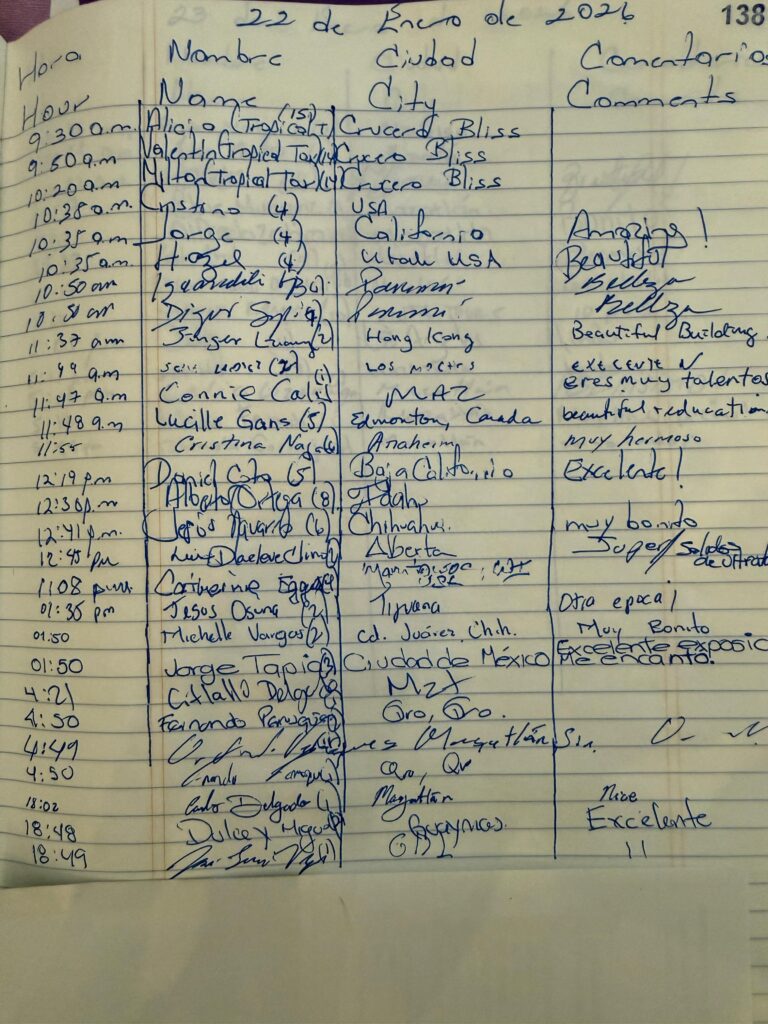 22 de Enero de 2026 138
Hora Nombre Ciudad Comentarios
Hour Name City Comments
9:30 a.m. Alicio (Tropical T. (15) Crucero Bliss
9:50 a.m Valentin (Tropical Tax (14 Crucero Bliss
10:20 a.m Milton (Tropical Tax (14 Crucero Bliss
10:38 a.m. Cristino (4) USA
10:35 a.m Jorge (4) California Amazing!
10:35 a.m Hazel (4) Utah USA Beautiful
10:50 am Belleza
10:50 am Belleza
11:37 am Luang (2) Hong Kong Beautiful Building.
11:44 a.m (2) Los
11:47 a.m Connie Calis (1) MAZ eres muy talentos
11:48 a.m Lucille Gans (5) Edmonton, Canada beautiful + education
11:55 Cristina Naga (6) Anaheim, muy hermoso
12:19 p.m Daniel Cota (5) Baja California Excelente!
12:30 p.m Alberto Ortega (8) Idaho
12:41 p.m. Jesús Navarro (6) Chihuahua. muy bonito
12:45 pm Luis Alberta Super/
1:08 pm Catherine
01:35 pm Jesos Osuna (2) Tijuana Otra epoca!
01:50 Michelle Vargas (2) cd. Juárez, Chih. Muy Bonito
01:50 Jorge Tapia (3) Ciudad de México Excelente exposic
Me encantó.
4:21 Citlalli Delga MZT
4:50 Fernando Qro, Qro.
4:49 Mazatlán, Sin.
4:50 Qro, Qro
18:02 Carlos Delgado (1) Mazatlán Nice
18:48 Dulce y Miguel Guaymas. Excelente
18:49 (1) GDL 11